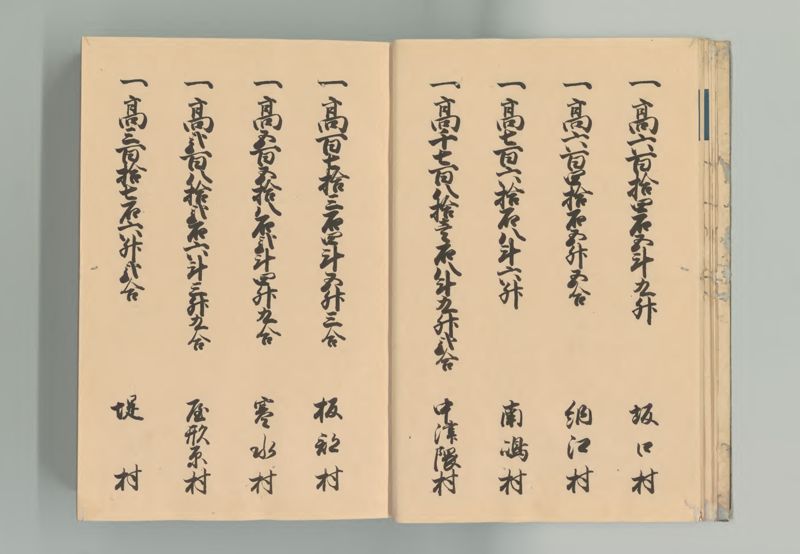 一高六百拾四石五斗九升 坂口村
一高六百四拾石五升五合 網江村
一高七百六拾石八斗六升 南嶋村
一高千七百八拾壱石八斗九升弐合 中津隈村
一高百七拾三石四斗五升三合 板部村
一高五百五拾八石弐斗四升九合 寒水村
一高弐百八拾弐石六斗三升九合 屋形原村
一高三百拾七石六升弐合 堤村